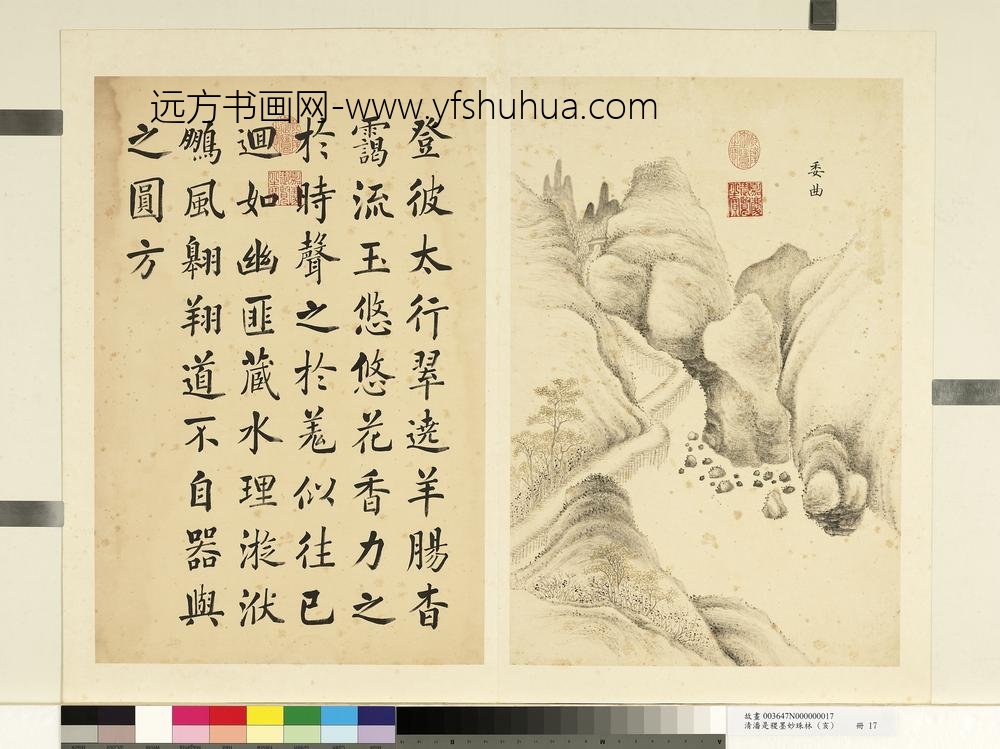 远方书画网-www.yfshuhua.com
委曲
登彼太行翠遶羊腸杳
靄流玉悠悠花香力之
於時聲之於羌似往已
迴如幽匪藏水理漩洑
鵬風翺翔道不自器與
之圓方
故畫 003647N000000017
清潘是稷墨妙珠林（亥） 冊 17